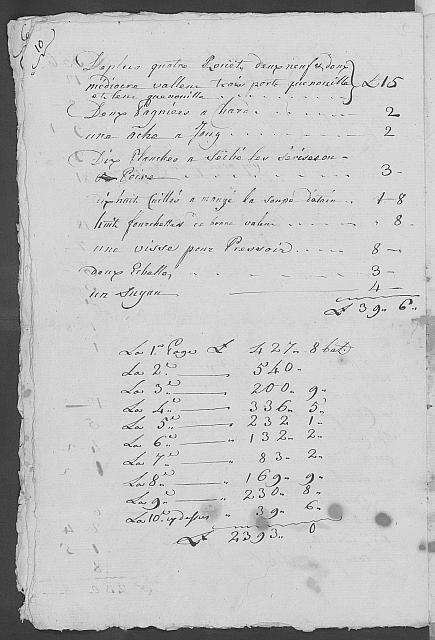 10
De plus quatre Rouët, deux neuf & deux
mediocre valleur trois porte quenouille
et leur quenouille . . . . . . £ 15
Deux Pagniers a hard . . . . 2
une Ache a Joug . . . . 2
Dix Planches a Seché les Sérises ou
Poire . . . . 3 -
dix huit Cuilles a mangé la soupe d'étain . . . 1 - 8
huit fourchettes de bonne valeur . . . . 8.
une visse pour Pressoir . . . . 8 -
deux Echelles . . . . 3 -
un Tuyau 4 -
£ 39 " 6 "
La 1re Page £ 427 " 8 bat
La 2e 540 "
La 3e " 200 " 9 "
La 4e " 336 " 5 "
La 5e " 232 1 "
La 6e " 132 " 2 "
La 7e " 83 " 2 "
La 8e " 169 " 9 "
La 9e " 230 " 8 "
La 10e cy dessus " 39 " 6 "
£ 2393 " 0